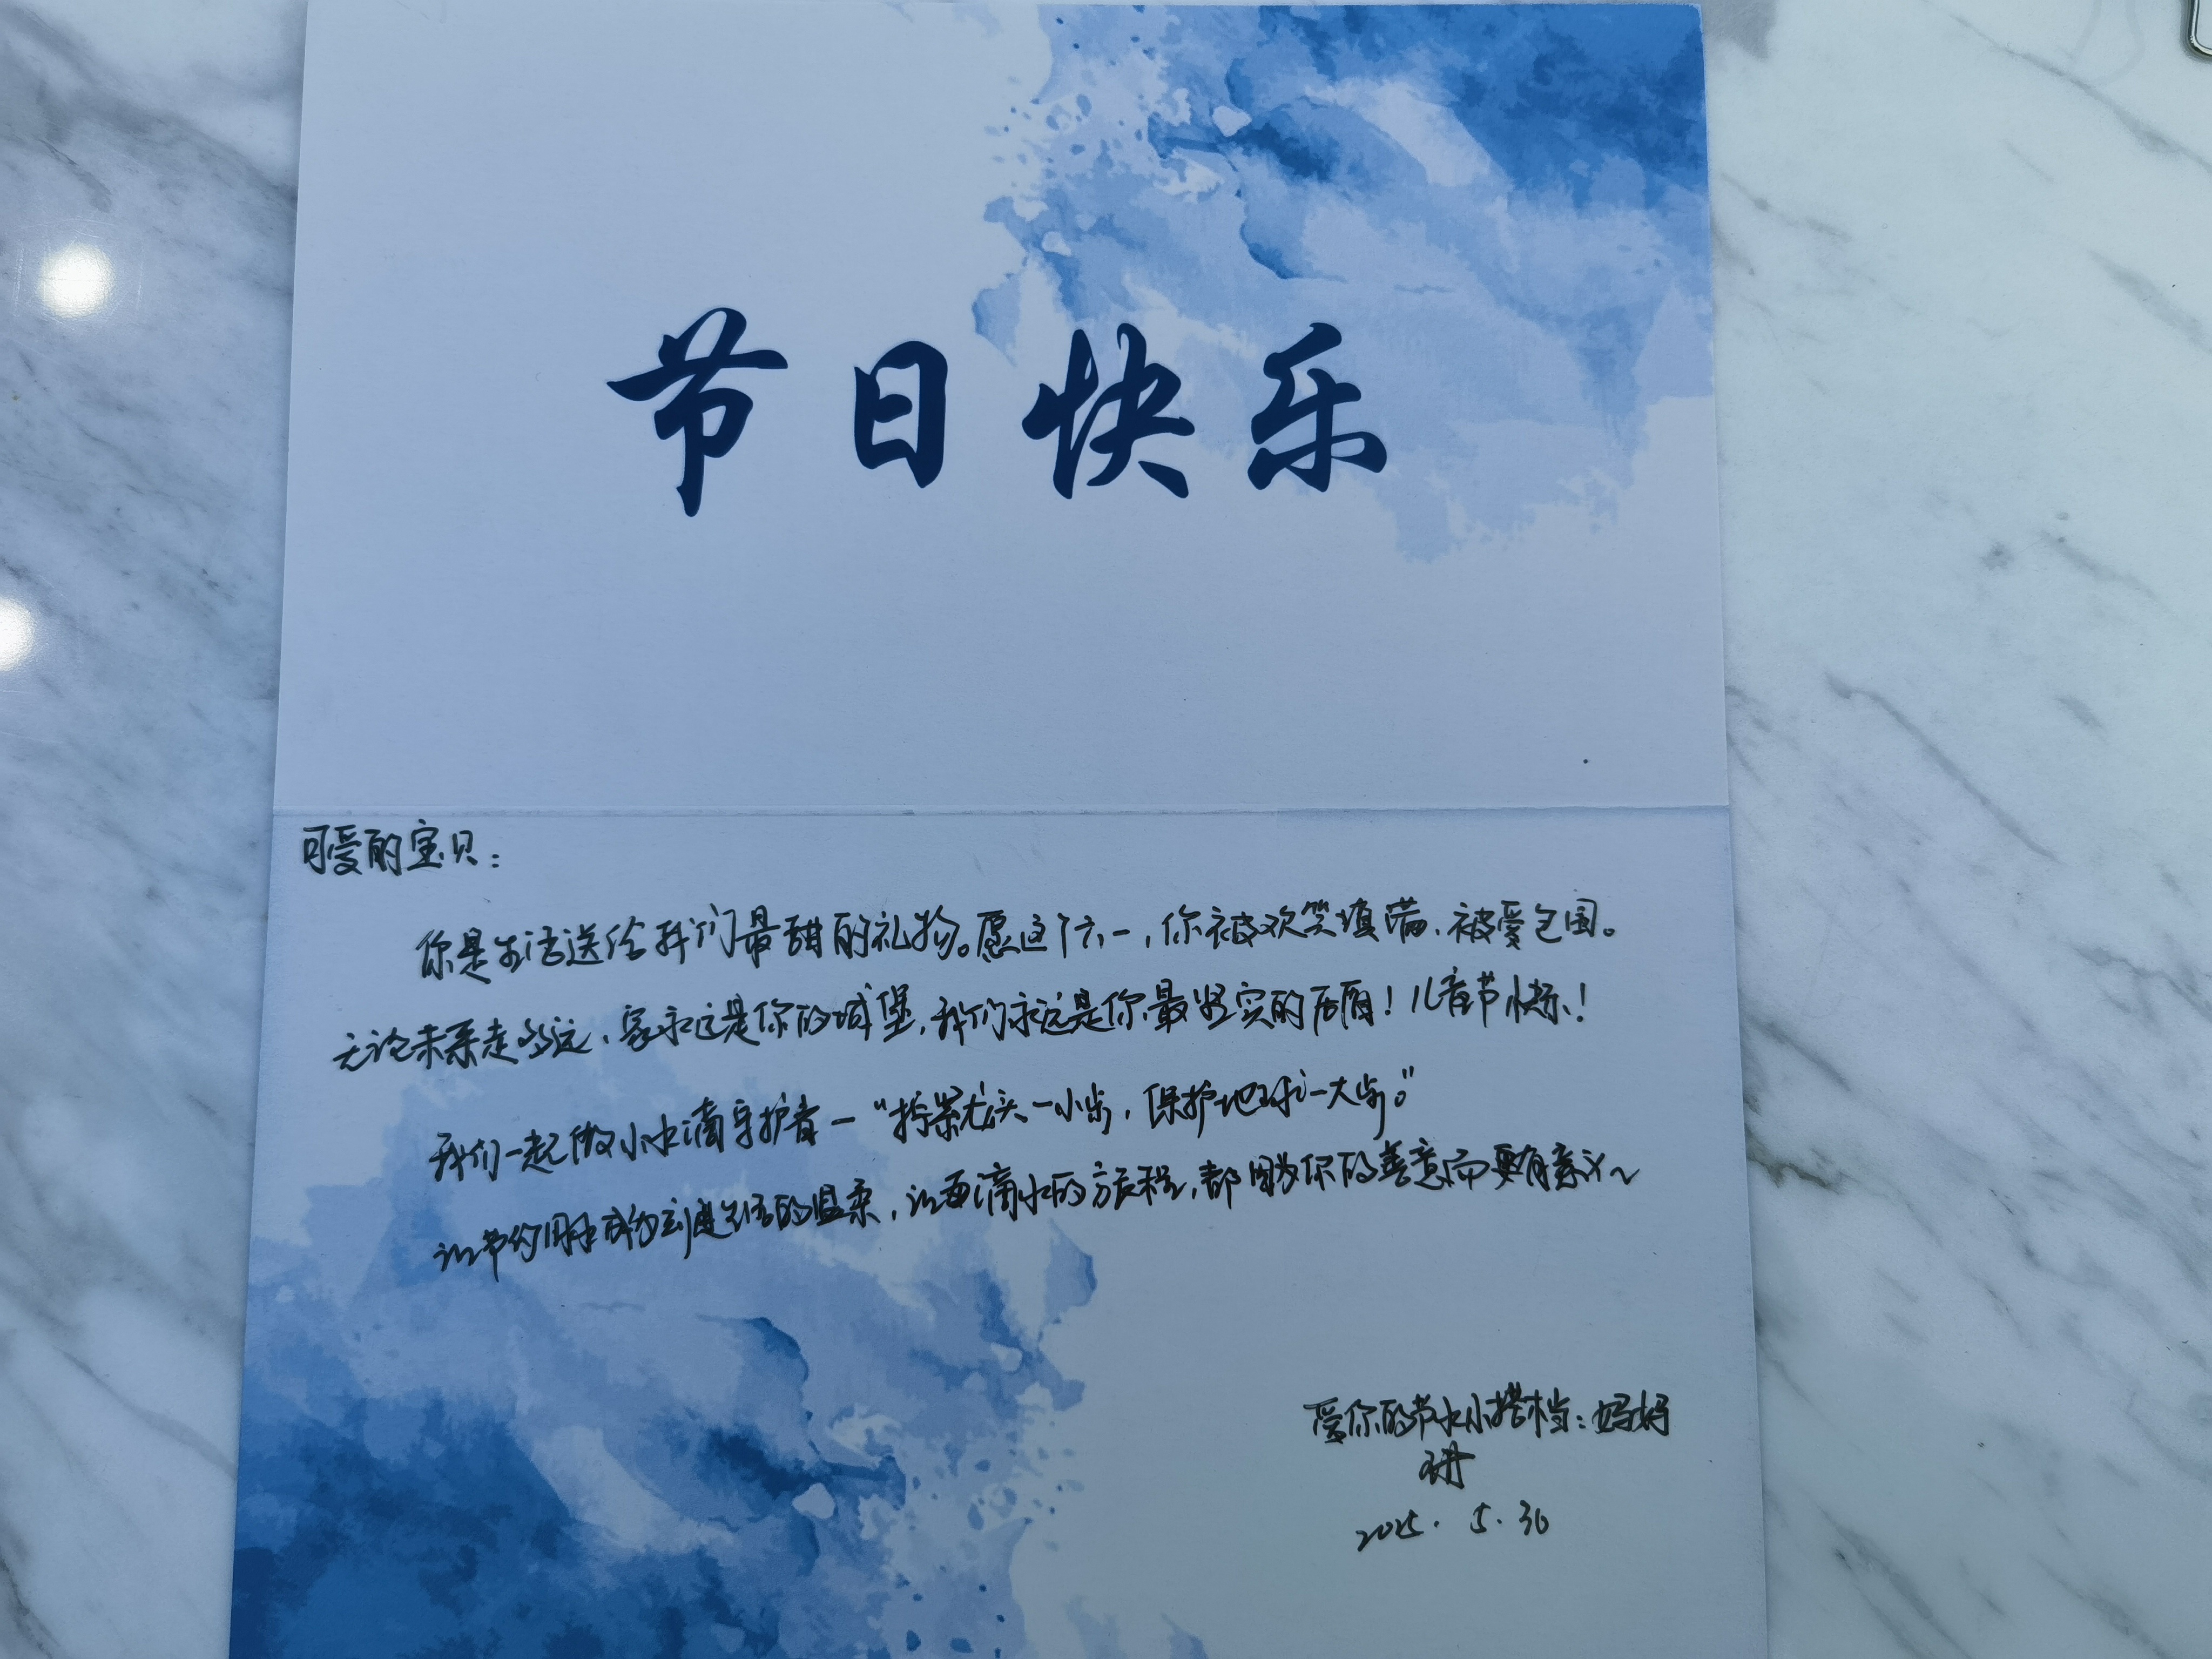 节日快乐
可爱的宝贝：
你是生活送给我们最甜的礼物。愿这个六一，你被欢笑填满、被爱包围。
无论未来走多远，家永远是你的城堡，我们永远是你最坚实的后盾！儿童节快乐！
我们一起做小水滴守护者—“拧紧龙头一小步，保护地球一大步。”
让节约用水成为刻进生活的温柔，让每滴水的旅程，都因为你的善意而更有意义～
爱你的节水小搭档：妈妈
2025. 5. 30